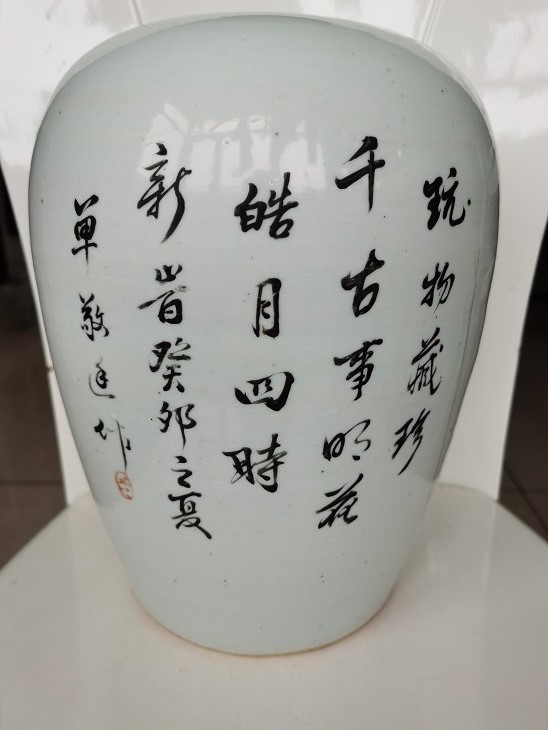 玩物藏珍
千古事明花
皓月四時
新峕癸卯之夏
單敬廷作